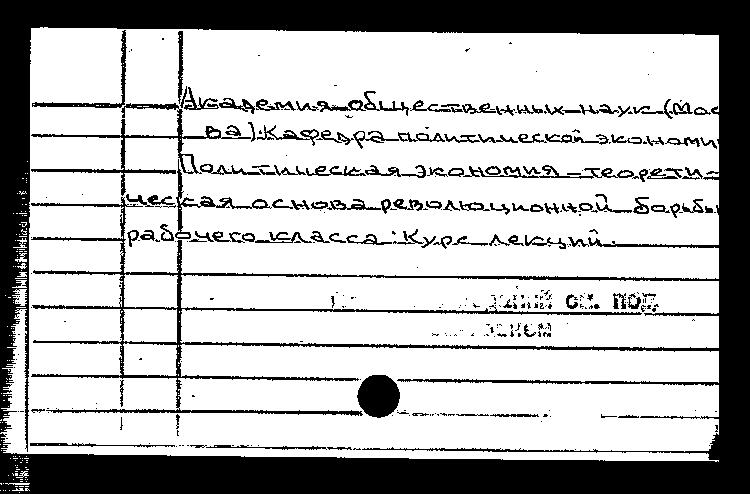 Академия общественных наук (Мос
ва). Кафедра политической экономи
Политическая экономия - теорети-
ческая основа революционной борьбы
рабочего класса: Курс лекций.
см. под